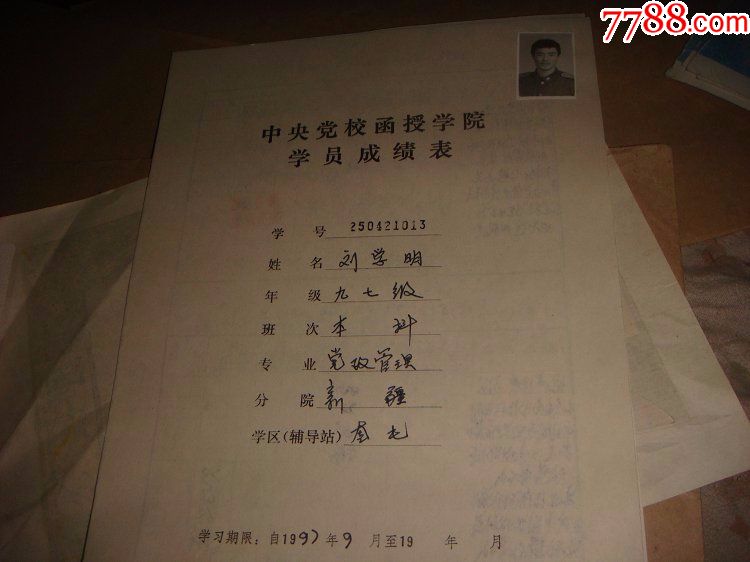 7788.com
中国收藏热线
中央党校函授学院
学员成绩表
学 号 250421013
姓 名 刘学明
年 级 九七级
班 次 本科
专 业 党政管理
分 院 新疆
学区(辅导站) 奎屯
学习期限：自1997年9月至19 年 月